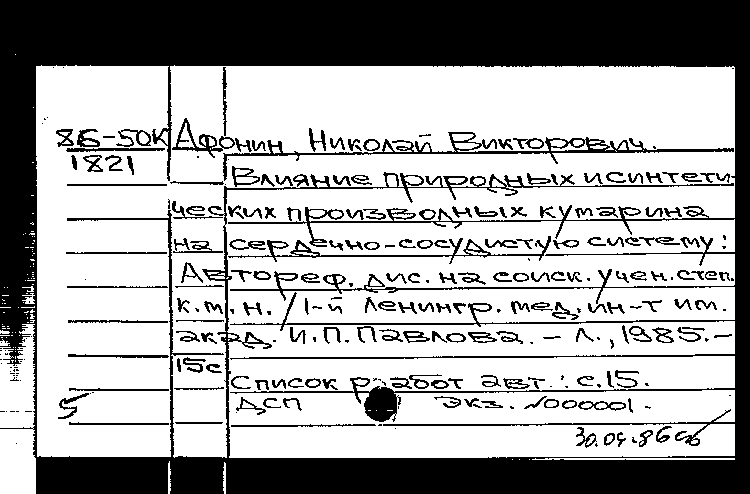 86-50К Афонин, Николай Викторович.
1821
Влияние природных и синтети-
ческих производных кумарина
на сердечно-сосудистую систему:
Автореф. дис. на соиск. учен. степ.
к.м.н. / 1-й Ленингр. мед. ин-т им.
акад. И.П. Павлова. - Л., 1985.-
15с
Список работ авт.: с. 15.
5 ДСП экз. №000001.
30.04.86